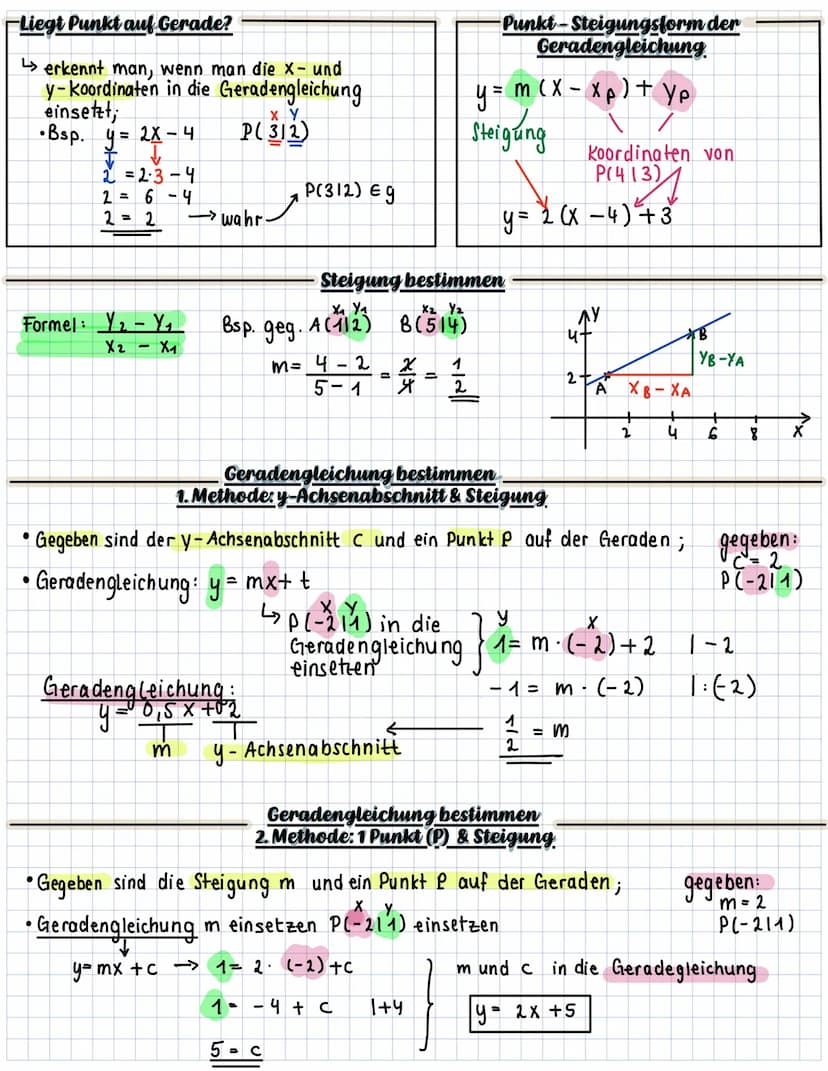 Liegt Punkt auf Gerade?
↳ erkennt man, wenn man die x- und
y-Koordinaten in die Geradengleichung
einsetzt;
x y
•Bsp. y = 2x - 4 P(3|2)
2 = 2·3 - 4
2 = 6 - 4
2 = 2 → wahr → P(3|2) ∈ g
Punkt - Steigungsform der
Geradengleichung
y = m (x - xp) + yp
Steigung
Koordinaten von
P(4|3)
y = 2 (x - 4) + 3
Steigung bestimmen
Formel: Y2 - Y1
X2 - X1
X1 Y1 X2 Y2
Bsp. geg. A(1|2) B(5|4)
m = 4 - 2 / 5 - 1 = 2/4 = 1/2
y
4
B
YB - YA
2
A XB - XA
2 4 6 8 x
Geradengleichung bestimmen
1. Methode: y-Achsenabschnitt & Steigung
• Gegeben sind der y-Achsenabschnitt c und ein Punkt P auf der Geraden;
gegeben:
c = 2
P(-2|1)
• Geradengleichung: y = mx + t
x y
↳ P(-2|1) in die
Geradengleichung
einsetzen
y x
1 = m · (-2) + 2 | - 2
-1 = m · (-2) | : (-2)
1/2 = m
Geradengleichung:
y = 0,5 x + 2
m y - Achsenabschnitt
Geradengleichung bestimmen
2. Methode: 1 Punkt (P) & Steigung
• Gegeben sind die Steigung m und ein Punkt P auf der Geraden;
gegeben:
m = 2
P(-2|1)
x y
• Geradengleichung m einsetzen P(-2|1) einsetzen
y = mx + c → 1 = 2 · (-2) + c
1 = -4 + c | +4
5 = c
m und c in die Geradegleichung
y = 2x + 5